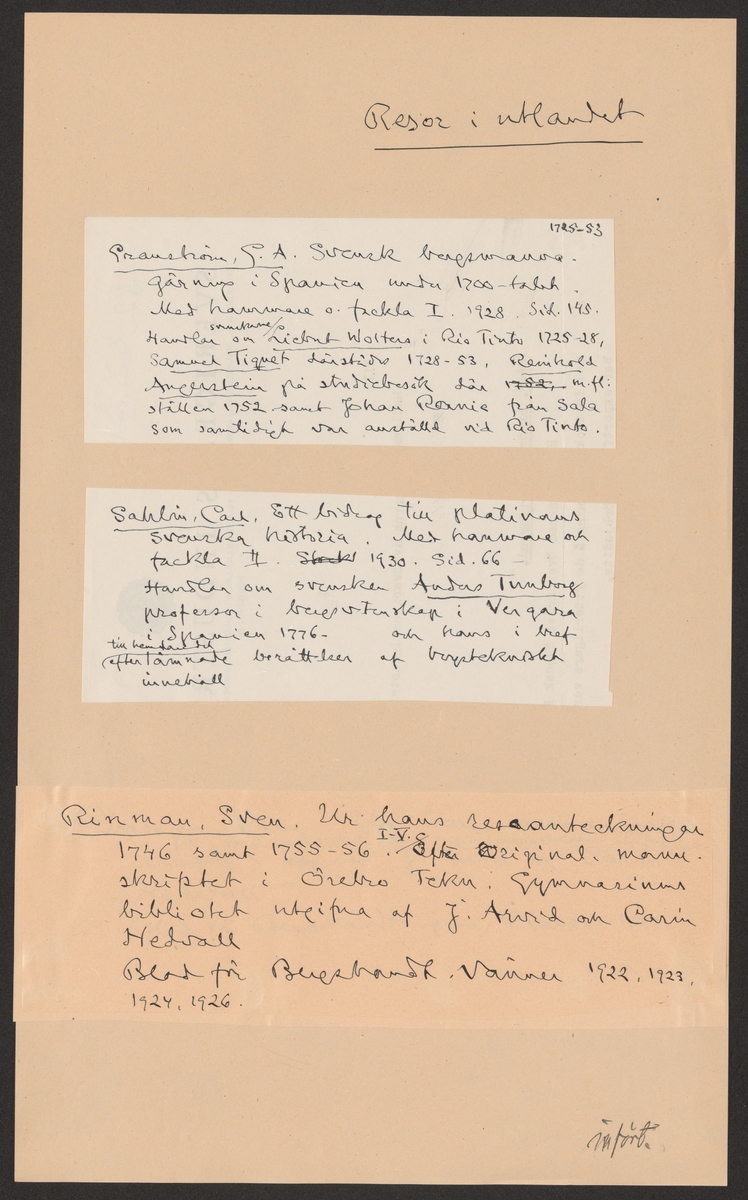 Resor i utlandet
1725-53
Granström, G. A. Svensk bergsmanna-
gärning i Spanien under 1700-talet.
Med hammare o. fackla I. 1928. Sid. 145.
svenskarne
Handlar om Liebert Wolters i Rio Tinto 1725-28,
Samuel Tiquet därstädes 1728-53, Reinhold
Angerstein på studiebesök där 1752, m.fl.
ställen 1752 samt Johan from Sala
som samtidigt var anställd vid Rio Tinto.
Sahlin, Carl. Ett bidrag till platinans
svenska historia. Med hammare och
fackla II. Stockh 1930. Sid. 66 -
Handlar om svensken Anders Tunborg
professor i bergsvetenskap i Vergara
i Spanien 1776- och hans i bref
till hemlandet
efterlämnade berättelser af bergstekniskt
innehåll
Rinman, Sven. Ur hans reseanteckningar
I-V.
1746 samt 1755-56. Efter Original. manu-
skriptet i Örebro Tekn. Gymnasiums
bibliotek utgifna af J. Arvid och Carin
Hedvall
Blad för Bergshandt. Vänner 1922, 1923,
1924, 1926.
infört.